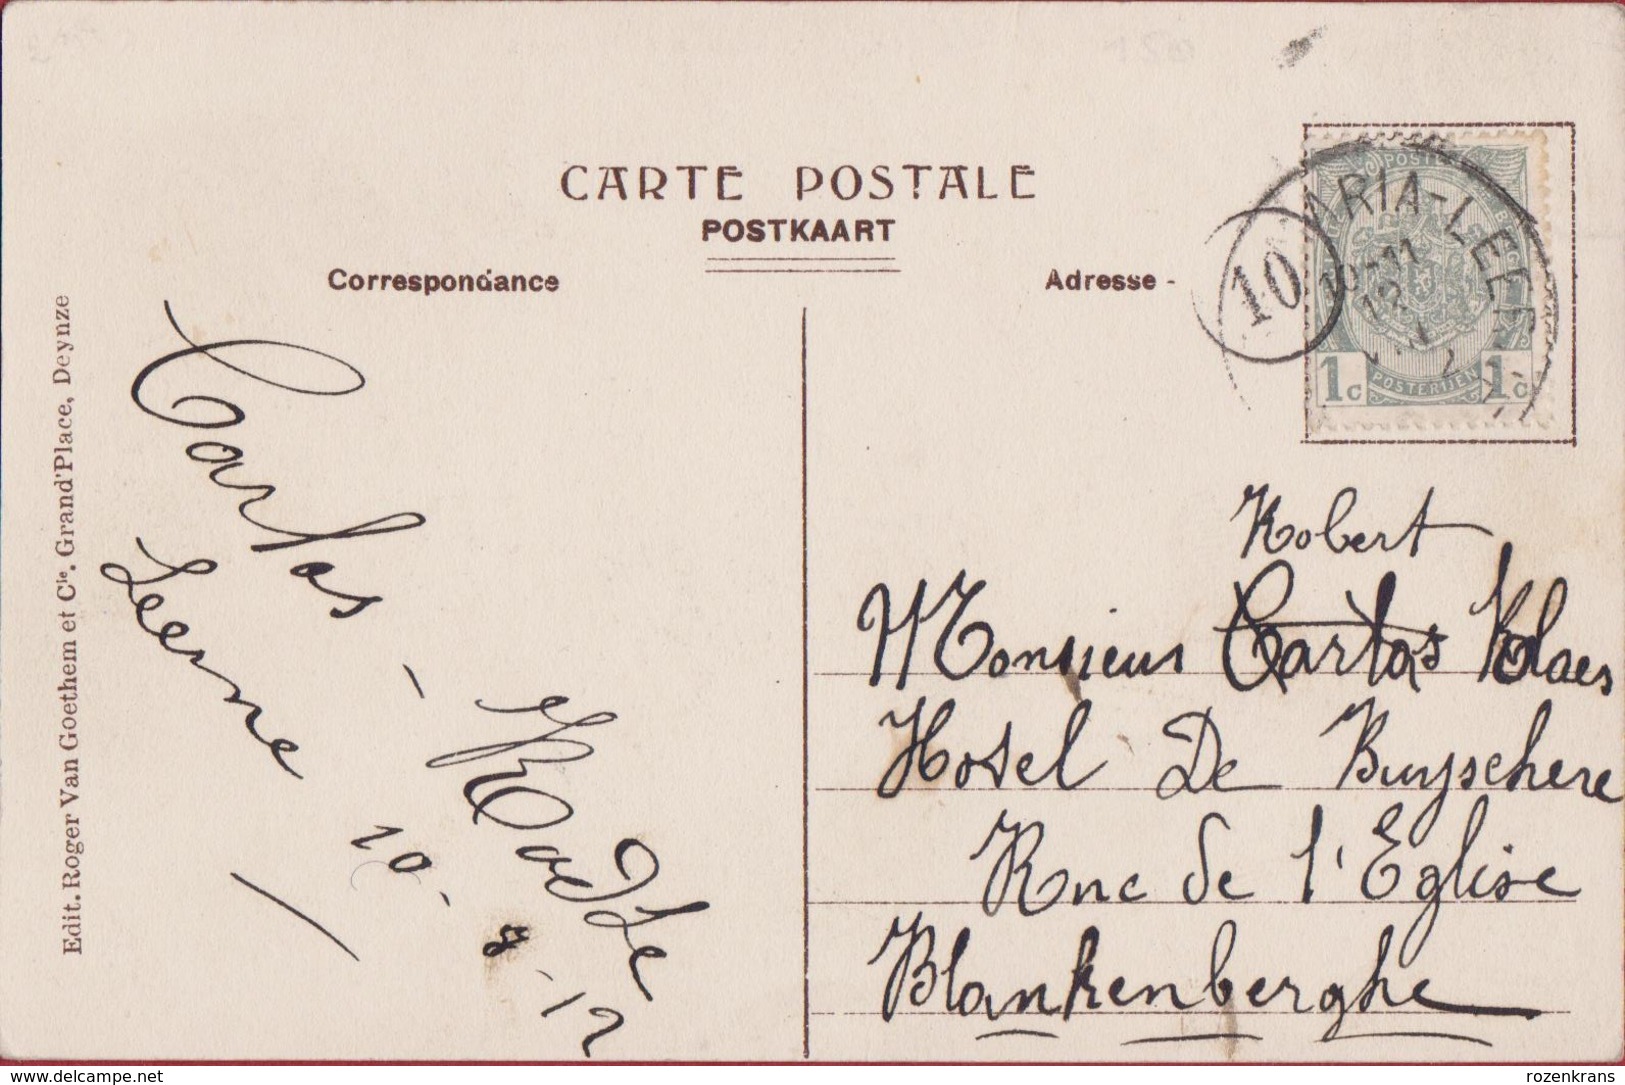 CARTE POSTALE
POSTKAART
Correspondance
Adresse -
Edit. Roger Van Goethem et Cie. Grand'Place, Deynze
POSTES
BELGIQUE
1c
POSTERIJEN
1c
ARIA-LEER
10-11
12
10
Carlos -
Leerne 10 - 8 - 12
Robert
Monsieur Carlos Klaes
Hotel De Buyschere
Rue de l'Eglise
Blankenberghe
rozenkrans
delcampe.net